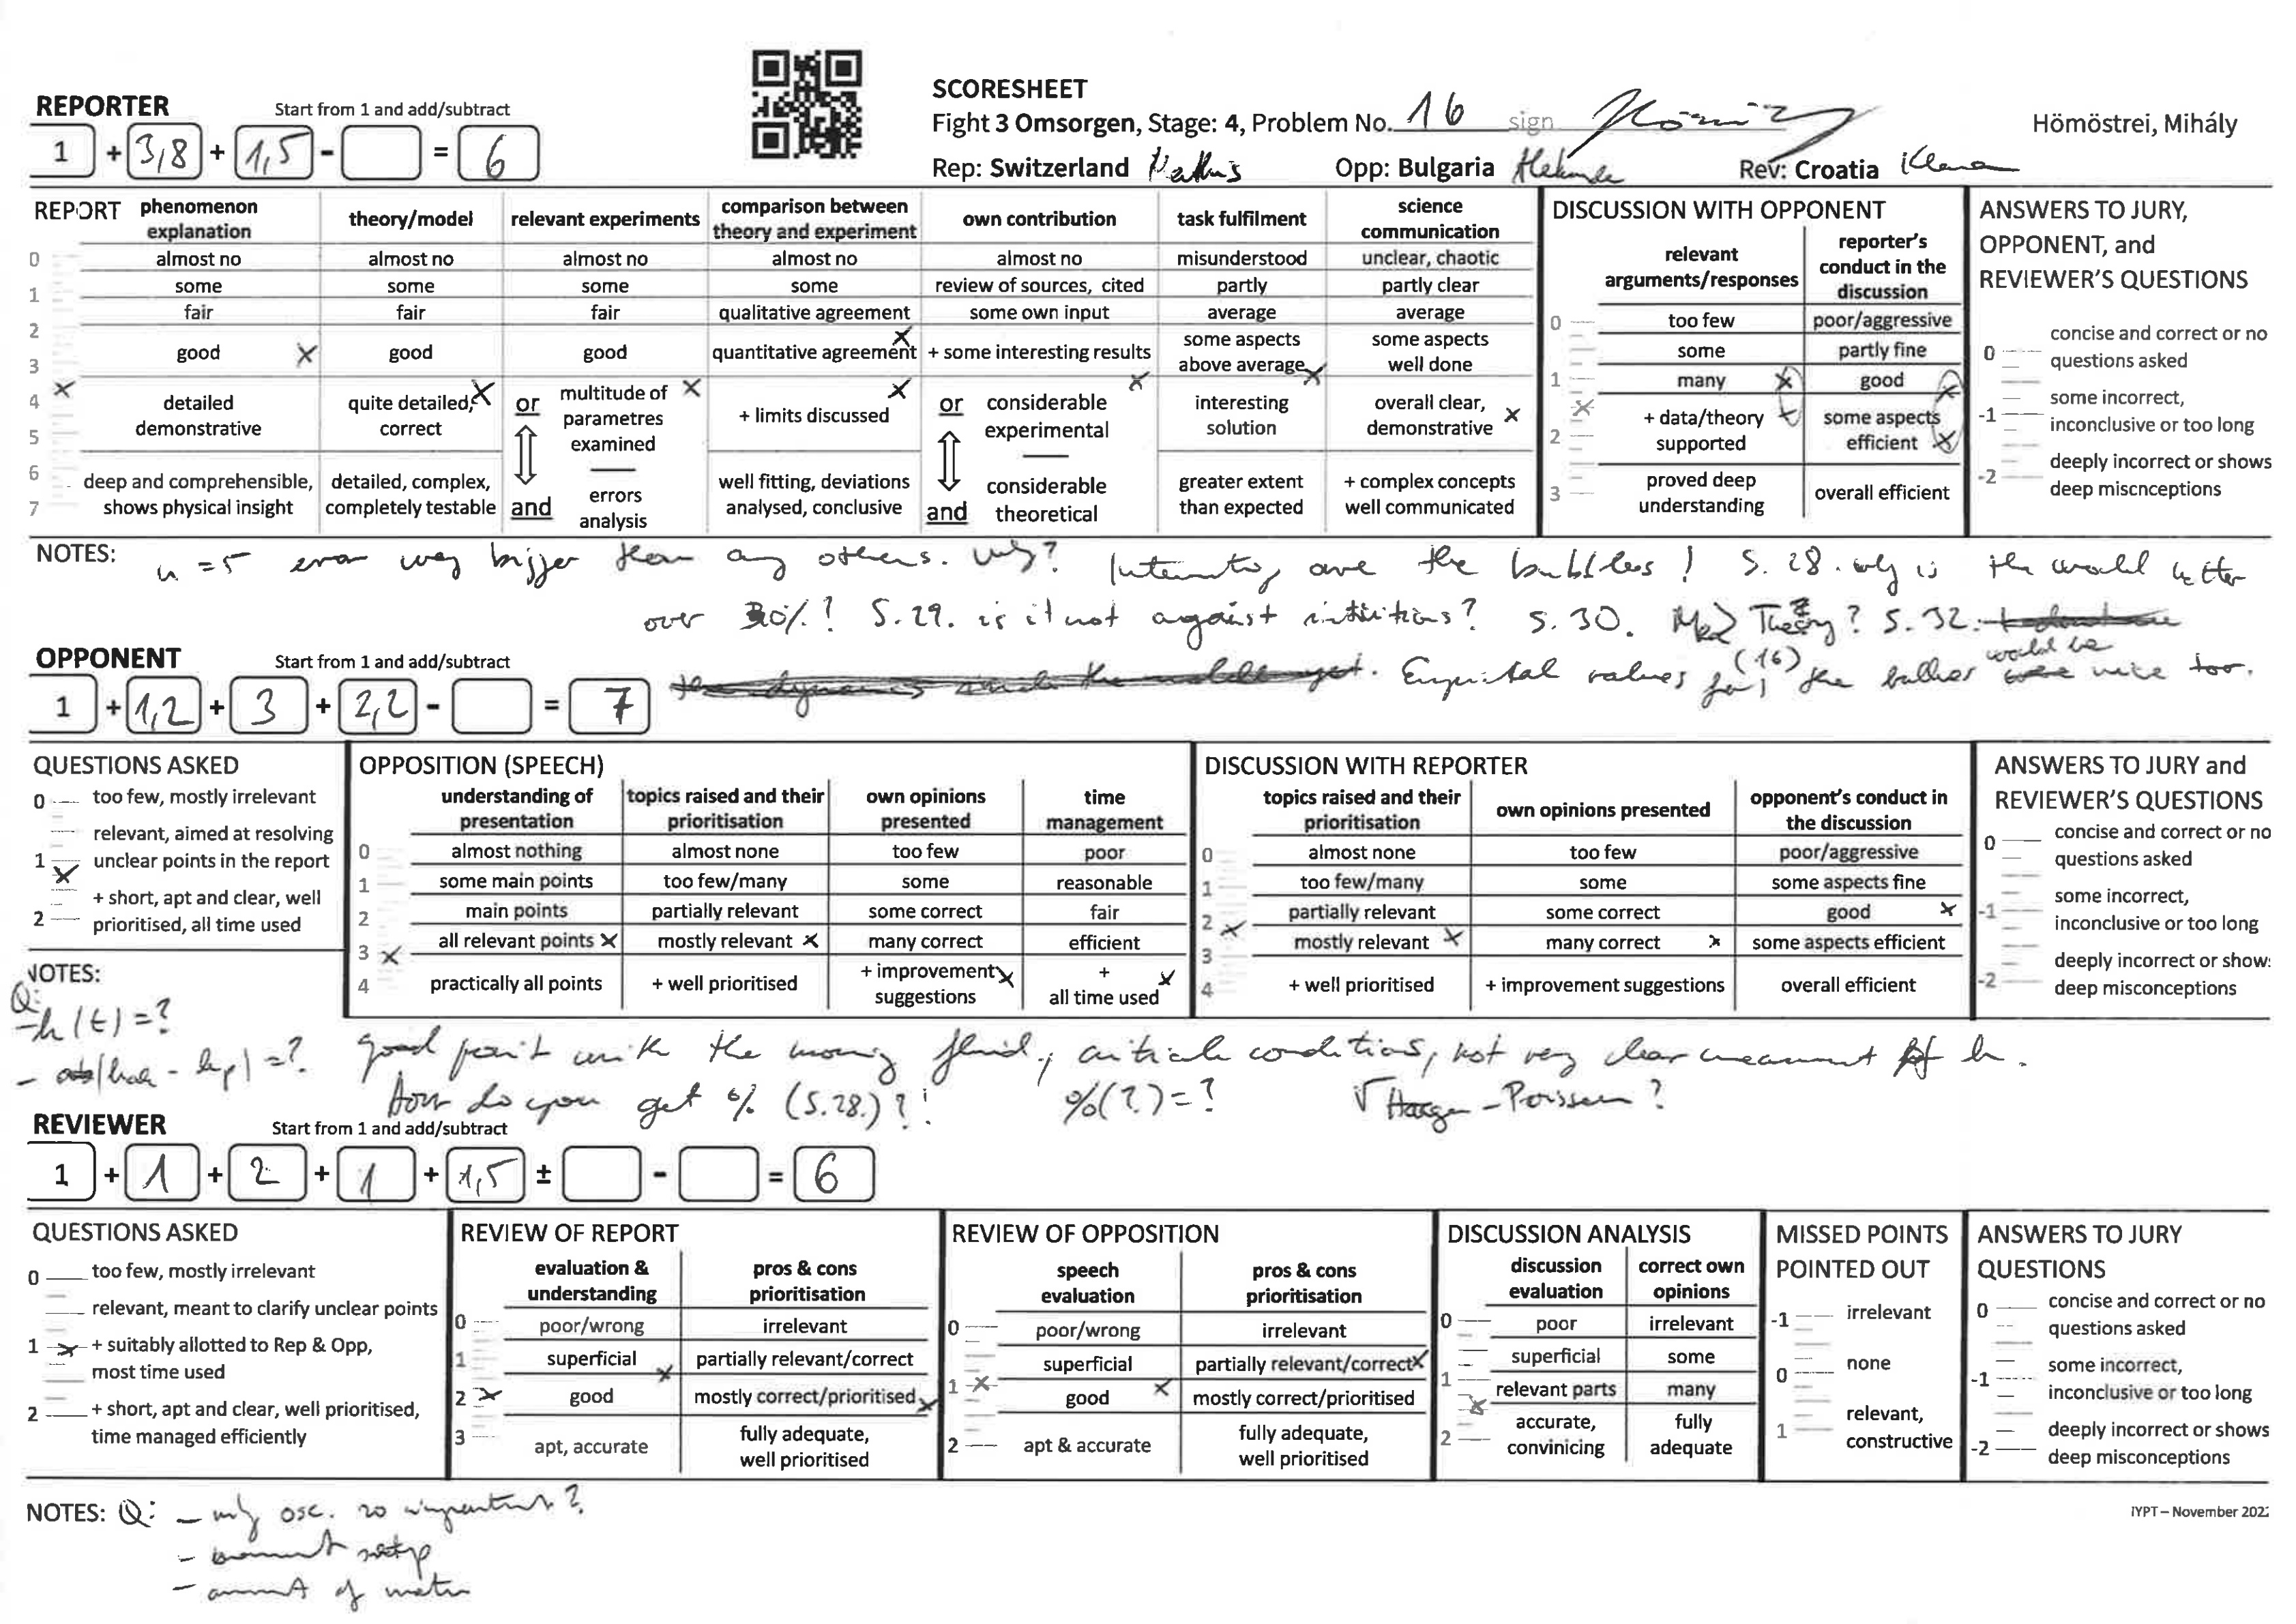 SCORESHEET
Fight 3 Omsorgen, Stage: 4, Problem No. 16 sign
Hömöstrei, Mihály
Rep: Switzerland Opp: Bulgaria Rev: Croatia Klara
REPORTER Start from 1 and add/subtract
1 + 3,8 + 1,5 - = 6
REPORT
phenomenon explanation
theory/model
relevant experiments
comparison between theory and experiment
own contribution
task fulfilment
science communication
0 almost no almost no almost no almost no almost no misunderstood unclear, chaotic
1 some some some some review of sources, cited partly partly clear
fair fair fair qualitative agreement some own input average average
2
3 good good good quantitative agreement + some interesting results some aspects above average some aspects well done
4
5 detailed demonstrative quite detailed, correct or multitude of parametres examined + limits discussed or considerable experimental interesting solution overall clear, demonstrative
6
7 deep and comprehensible, shows physical insight detailed, complex, completely testable and errors analysis well fitting, deviations analysed, conclusive and considerable theoretical greater extent than expected + complex concepts well communicated
DISCUSSION WITH OPPONENT
relevant arguments/responses
reporter's conduct in the discussion
0 too few poor/aggressive
some partly fine
1 many good
2 + data/theory supported some aspects efficient
3 proved deep understanding overall efficient
ANSWERS TO JURY, OPPONENT, and REVIEWER'S QUESTIONS
0 concise and correct or no questions asked
-1 some incorrect, inconclusive or too long
-2 deeply incorrect or shows deep miscnceptions
NOTES: n = 5 error way bigger than any others. Why? Intensity are the bubbles! S. 28. why is the would better
over 30%? S. 29. is it not against intuitions? S. 30. Theory? S. 32.
(16) would be nice too.
OPPONENT Start from 1 and add/subtract
1 + 1,2 + 3 + 2,2 - = 7
QUESTIONS ASKED
0 too few, mostly irrelevant
relevant, aimed at resolving
1 unclear points in the report
+ short, apt and clear, well
2 prioritised, all time used
OPPOSITION (SPEECH)
understanding of presentation
topics raised and their prioritisation
own opinions presented
time management
0 almost nothing almost none too few poor
1 some main points too few/many some reasonable
2 main points partially relevant some correct fair
3 all relevant points mostly relevant many correct efficient
4 practically all points + well prioritised + improvement suggestions + all time used
DISCUSSION WITH REPORTER
topics raised and their prioritisation
own opinions presented
opponent's conduct in the discussion
0 almost none too few poor/aggressive
1 too few/many some some aspects fine
2 partially relevant some correct good
3 mostly relevant many correct some aspects efficient
4 + well prioritised + improvement suggestions overall efficient
ANSWERS TO JURY and REVIEWER'S QUESTIONS
0 concise and correct or no questions asked
-1 some incorrect, inconclusive or too long
-2 deeply incorrect or show: deep misconceptions
NOTES:
Q:
- h(t) = ?
good point with the moving fluid, critical conditions, not very clear of h.
How do you get % (S. 28.)?! %(?) = ?
REVIEWER Start from 1 and add/subtract
1 + 1 + 2 + 1 + 1,5 ± - = 6
QUESTIONS ASKED
0 too few, mostly irrelevant
relevant, meant to clarify unclear points
1 + suitably allotted to Rep & Opp, most time used
2 + short, apt and clear, well prioritised, time managed efficiently
REVIEW OF REPORT
evaluation & understanding
pros & cons prioritisation
0 poor/wrong irrelevant
1 superficial partially relevant/correct
2 good mostly correct/prioritised
3 apt, accurate fully adequate, well prioritised
REVIEW OF OPPOSITION
speech evaluation
pros & cons prioritisation
0 poor/wrong irrelevant
superficial partially relevant/correct
1 good mostly correct/prioritised
2 apt & accurate fully adequate, well prioritised
DISCUSSION ANALYSIS
discussion evaluation
correct own opinions
0 poor irrelevant
superficial some
1 relevant parts many
2 accurate, convinicing fully adequate
MISSED POINTS POINTED OUT
-1 irrelevant
0 none
1 relevant, constructive
ANSWERS TO JURY QUESTIONS
0 concise and correct or no questions asked
-1 some incorrect, inconclusive or too long
-2 deeply incorrect or shows deep misconceptions
NOTES: Q: - why osc. so important?
- setup
- amount of water
IYPT – November 202